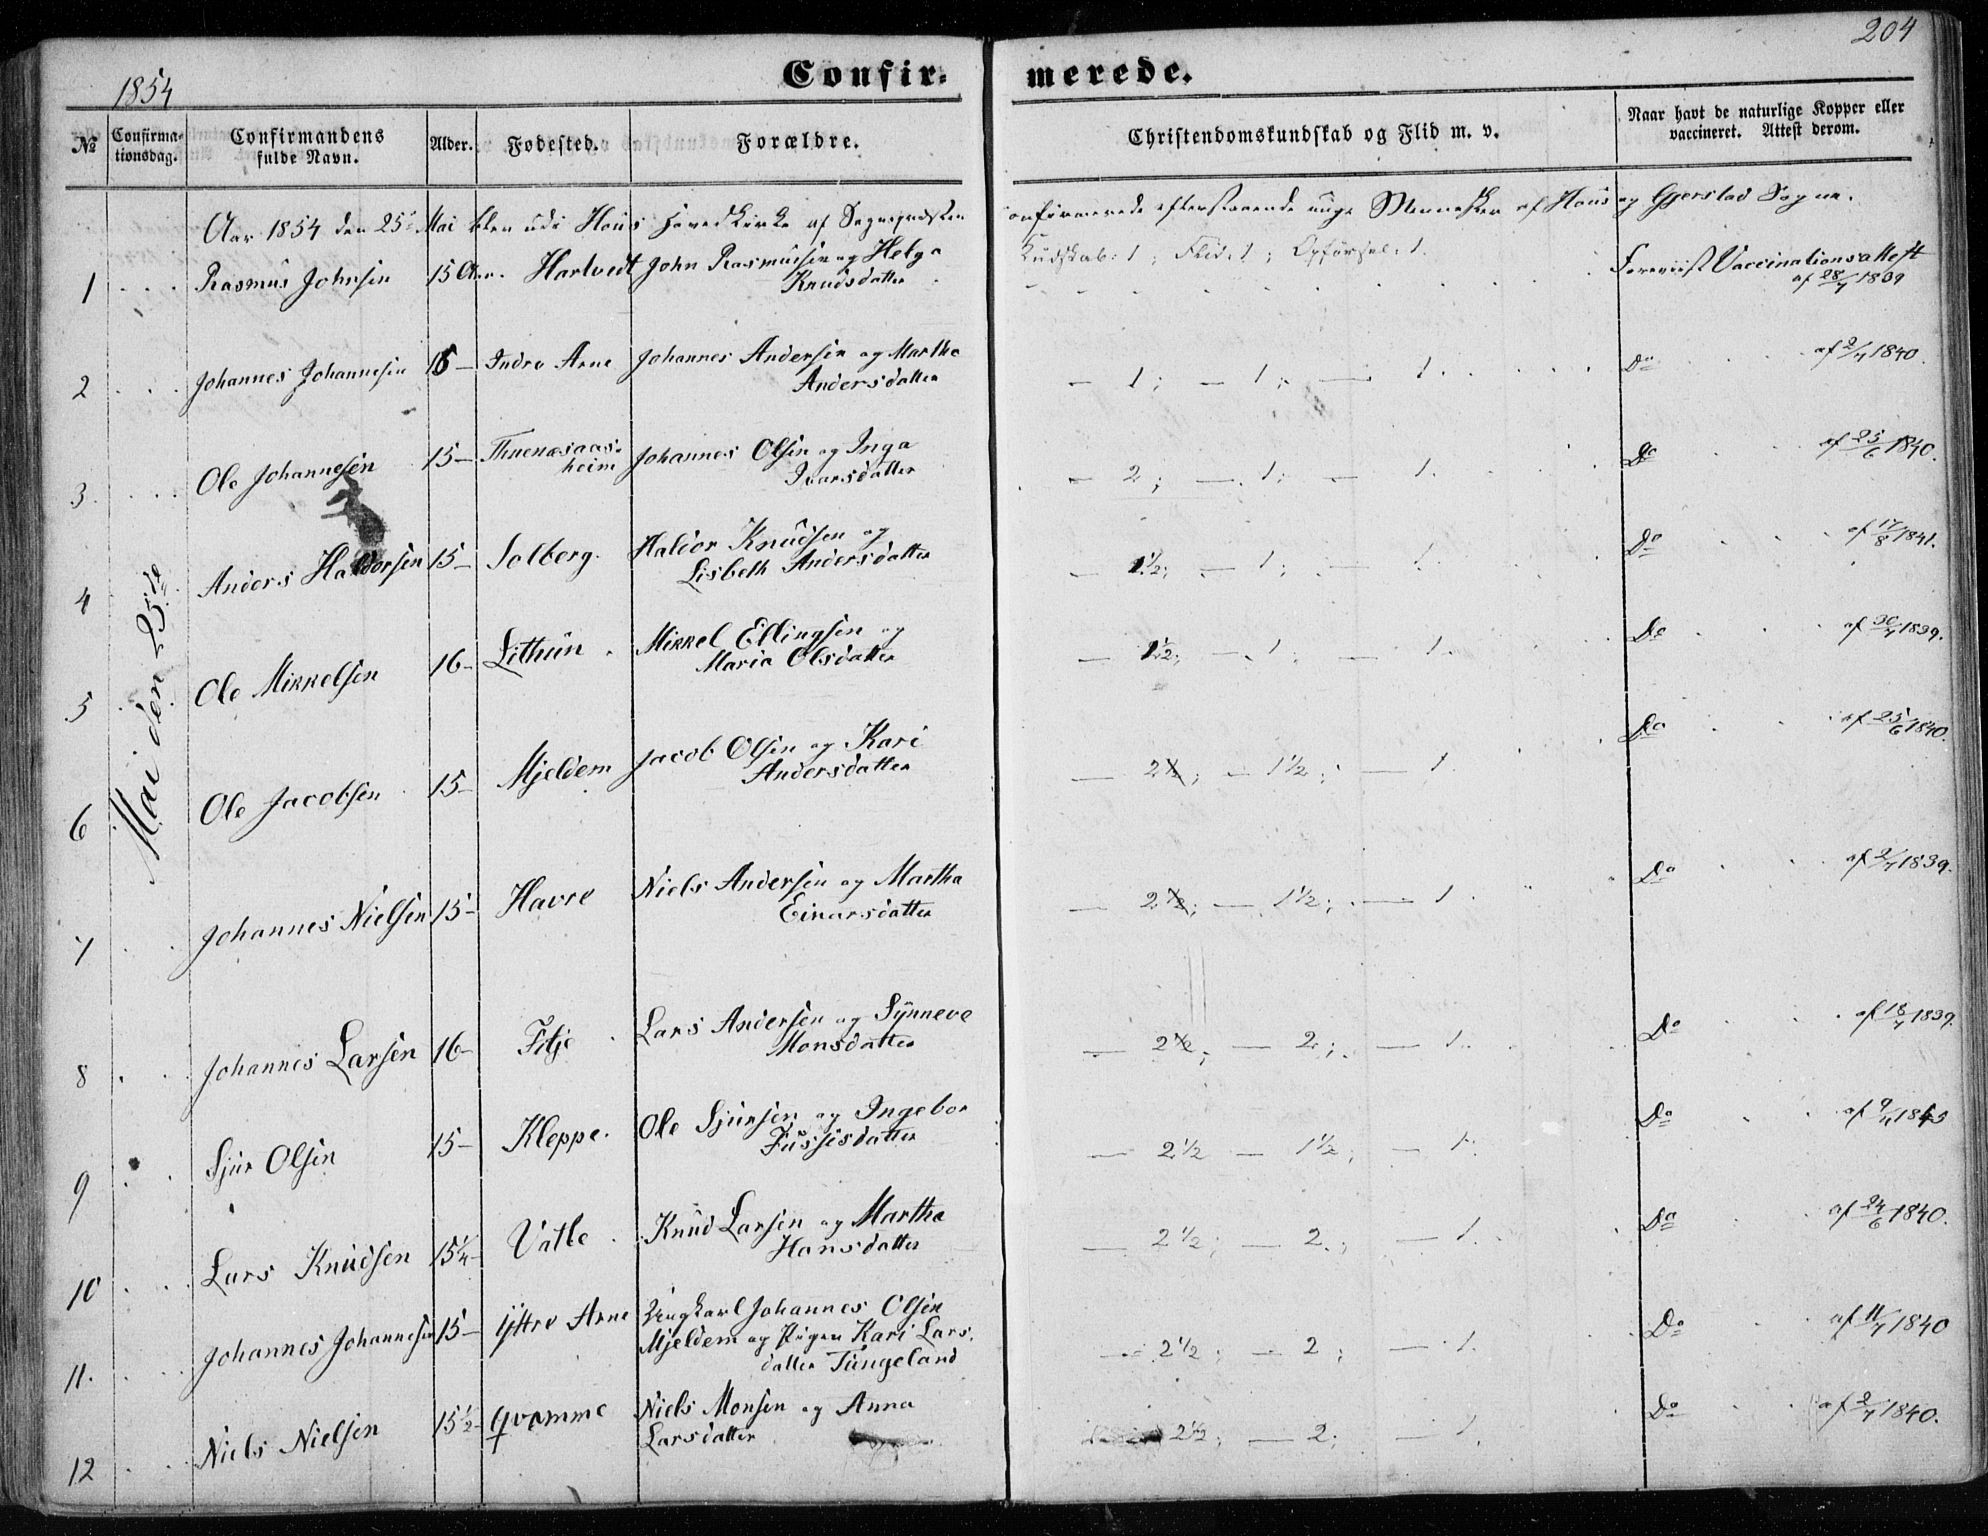 204
1854
Confir- merede.
№ Confirma-tionsdag. Confirmandens fulde Navn. Alder. Fødested. Forældre. Christendomskundskab og Flid m. v. Naar havt de naturlige Kopper eller vaccineret. Attest derom.
Aar 1854 den 25de Mai blev udi Hous Hovedkirke af Sognepræsten onfirmerede efterstaaende unge Mennesker af Hous og Gjerstad Sogne.
Mai den 25de
1 Rasmus Johnsen 15 Aar. Hartvedt John Rasmussen og Helga Kundskab: 1; Flid: 1; Opførsel: 1. Foreviist Vaccinationsattest
Knudsdatter af 28/7 1839
2 Johannes Johannesen 15 — Indre Arne Johannes Andersen og Martha — 1; — 1; — 1. Do af 2/7 1840.
Andersdatter
3. Ole Johannesen 15 — Thuenæsaas- Johannes Olsen og Inga — 2; — 1; — 1. Do af 25/6 1840.
heim Ivarsdatter
4 Anders Haldorsen 15 — Solberg. Haldor Knudsen og — 1½; — 1; — 1. Do af 17/8 1841.
Lisbeth Andersdatter
5 Ole Mikkelsen 16 — Lithun. Mikkel Ellingsen og — 1½; — 1; — 1. Do af 30/7 1839.
Maria Olsdatter
6 Ole Jacobsen 15 — Mjeldem Jacob Olsen og Kari — 2½; — 1½; — 1. Do af 25/6 1840.
Andersdatter
7 Johannes Nielsen 15 — Havre Niels Andersen og Martha — 2½; — 1½; — 1. Do af 2/7 1839.
Einarsdatter
8 Johannes Larsen 16 — Fitje Lars Andersen og Synneve — 2½; — 2; — 1. Do af 18/7 1839.
Monsdatter
9 Sjur Olsen 15 — Kleppe. Ole Sjursen og Ingebor — 2½ — 1½; — 1. Do
Fussisdatter
10 Lars Knudsen 15¼ — Vatle Knud Larsen og Martha — 2½; — 2; — 1. Do af 24/6 1840.
Hansdatter
11. Johannes Johannesen 15 — Yttre Arne Ungkarl Johannes Olsen — 2½; — 2; — 1. Do af 11/7 1840
Mjeldem og Pigen Kari Lars-
datter Tungeland
12 Niels Nielsen 15½ — Qvamme Niels Monsen og Anna 2½; — 2; — 1. Do af 2/7 1840.
Larsdatter